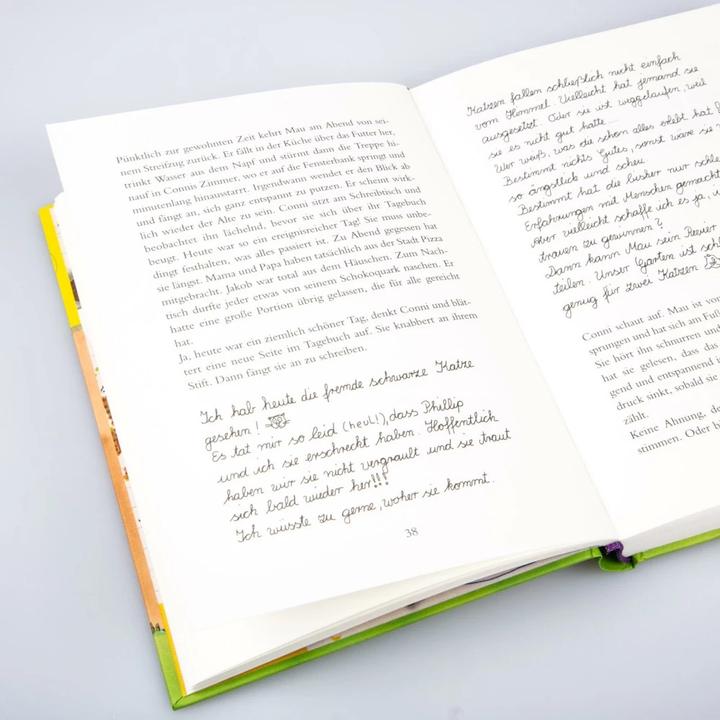 Pünktlich zur gewohnten Zeit kehrt Mau am Abend von sei-
nem Streifzug zurück. Er fällt in der Küche über das Futter her,
trinkt Wasser aus dem Napf und stürmt dann die Treppe hi-
nauf in Connis Zimmer, wo er auf die Fensterbank springt und
minutenlang hinausstarrt. Irgendwann wendet er den Blick ab
und fängt an, sich ganz entspannt zu putzen. Er scheint wirk-
lich wieder der Alte zu sein. Conni sitzt am Schreibtisch und
beobachtet ihn lächelnd, bevor sie sich über ihr Tagebuch
beugt. Heute war so ein ereignisreicher Tag! Sie muss unbe-
dingt festhalten, was alles passiert ist. Zu Abend gegessen hat
sie längst. Mama und Papa haben tatsächlich aus der Stadt Pizza
mitgebracht. Jakob war total aus dem Häuschen. Zum Nach-
tisch durfte jeder etwas von seinem Schokoquark naschen. Er
hatte eine große Portion übrig gelassen, die für alle gereicht
hat.
Ja, heute war ein ziemlich schöner Tag, denkt Conni und blät-
tert eine neue Seite im Tagebuch auf. Sie knabbert an ihrem
Stift. Dann fängt sie an zu schreiben.
Ich hab heute die fremde schwarze Katze
gesehen!
Es tat mir so leid (heul!), dass Phillip
und ich sie erschreckt haben. Hoffentlich
haben wir sie nicht vergrault und sie traut
sich bald wieder her!!!
Ich wüsste zu gerne, woher sie kommt.
38
Katzen fallen schließlich nicht einfach
vom Himmel. Vielleicht hat jemand sie
ausgesetzt. Oder sie ist weggelaufen, weil
sie es nicht gut hatte...
Wer weiß, was da schon alles erlebt hat
Bestimmt nichts Gutes, sonst wäre sie
so ängstlich und scheu.
Bestimmt hat die bisher nur
Erfahrungen mit Menschen gemacht
Aber vielleicht schaffe ich es ja,
trauen zu gewinnen?
Dann kann Mau sein Revier
teilen. Unser Garten ist
genug für zwei Katzen
Conni schaut auf. Mau ist
sprungen und hat sich am
Sie hört ihn schnurren und
hat sie gelesen, dass das
gend und entspannend
druck sinkt, sobald sie
zählt.
Keine Ahnung,
stimmen. Oder